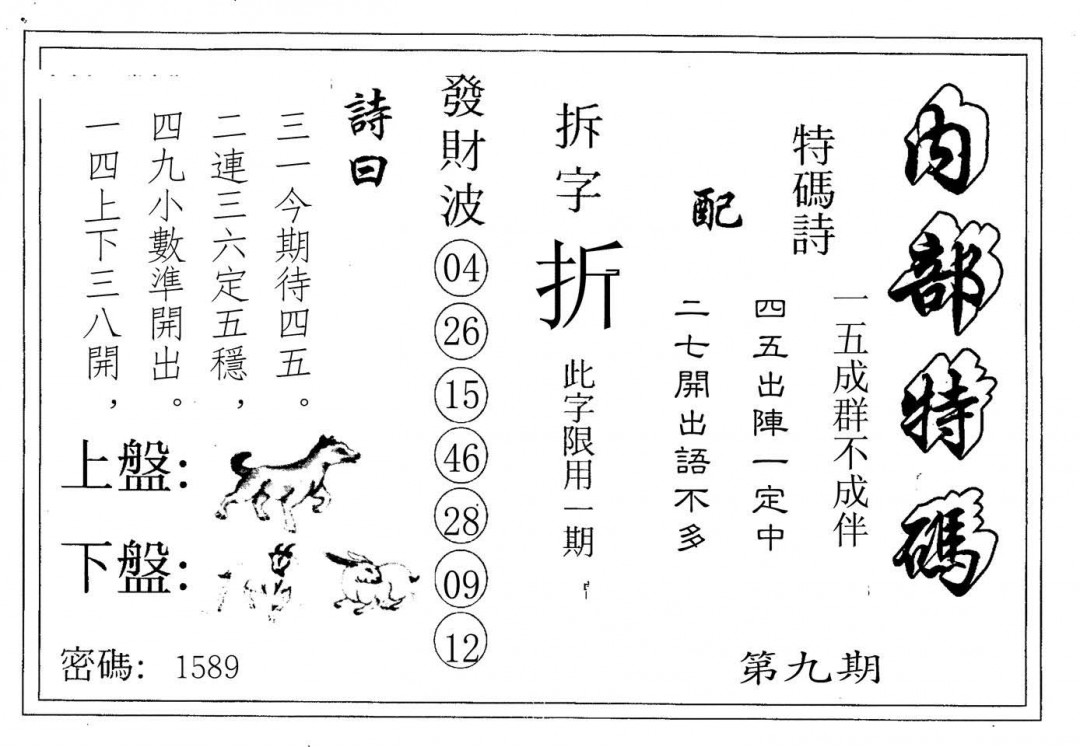 內部特碼
特碼詩
一五成群不成伴
四五出陣一定中
配
二七開出語不多
第九期
拆字
折
此字限用一期
發財波
04
26
15
46
28
09
12
詩曰
三一今期待四五。
二連三六定五穩，
四九小數準開出。
一四上下三八開，
上盤：
下盤：
密碼： 1589